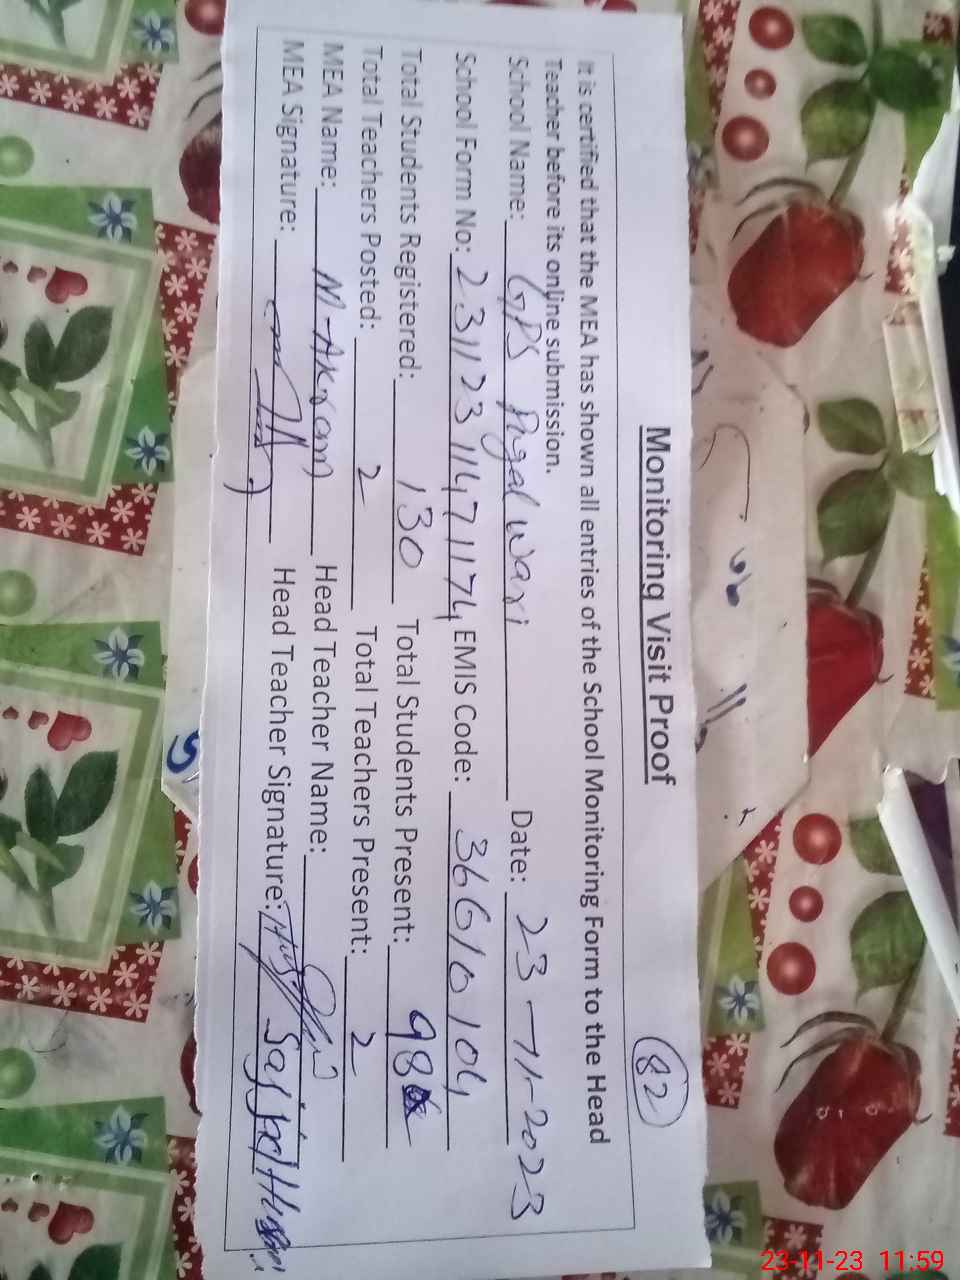 Monitoring Visit Proof
82
It is certified that the MEA has shown all entries of the School Monitoring Form to the Head
Teacher before its online submission.
School Name: GPS Rigal wari Date: 23-11-2023
School Form No: 23112311471174 EMIS Code: 36610104
Total Students Registered: 130 Total Students Present: 98
Total Teachers Posted: 2 Total Teachers Present: 2
MEA Name: M-Akram Head Teacher Name:
MEA Signature: Head Teacher Signature: Sajjad
23-11-23 11:59